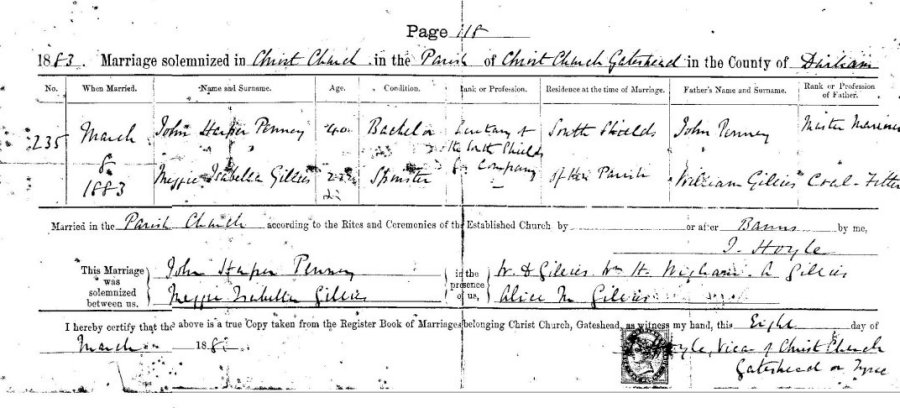 Page 118
1883. Marriage solemnized in Christ Church in the Parish of Christ Church Gateshead in the County of Durham
No. When Married. Name and Surname. Age. Condition. Rank or Profession. Residence at the time of Marriage. Father's Name and Surname. Rank or Profession of Father.
235 March 8 1883 John Harper Penney 40 Bachelor Secretary of the South Shields Gas Company South Shields John Penney Master Mariner
Meggie Isabella Gillies 22 Spinster — of this Parish William Gillies Coal-Fitter
22
Married in the Parish Church according to the Rites and Ceremonies of the Established Church by —— or after Banns by me,
J. Hoyle
This Marriage was solemnized between us, John Harper Penney in the presence of us, W. D Gillies Wm H. Wigham A Gillies
Meggie Isabella Gillies Alice M Gillies
I hereby certify that the above is a true Copy taken from the Register Book of Marriages belonging Christ Church, Gateshead, as witness my hand, this Eight day of
March 188 Hoyle, Vicar of Christ Church
Gateshead on Tyne